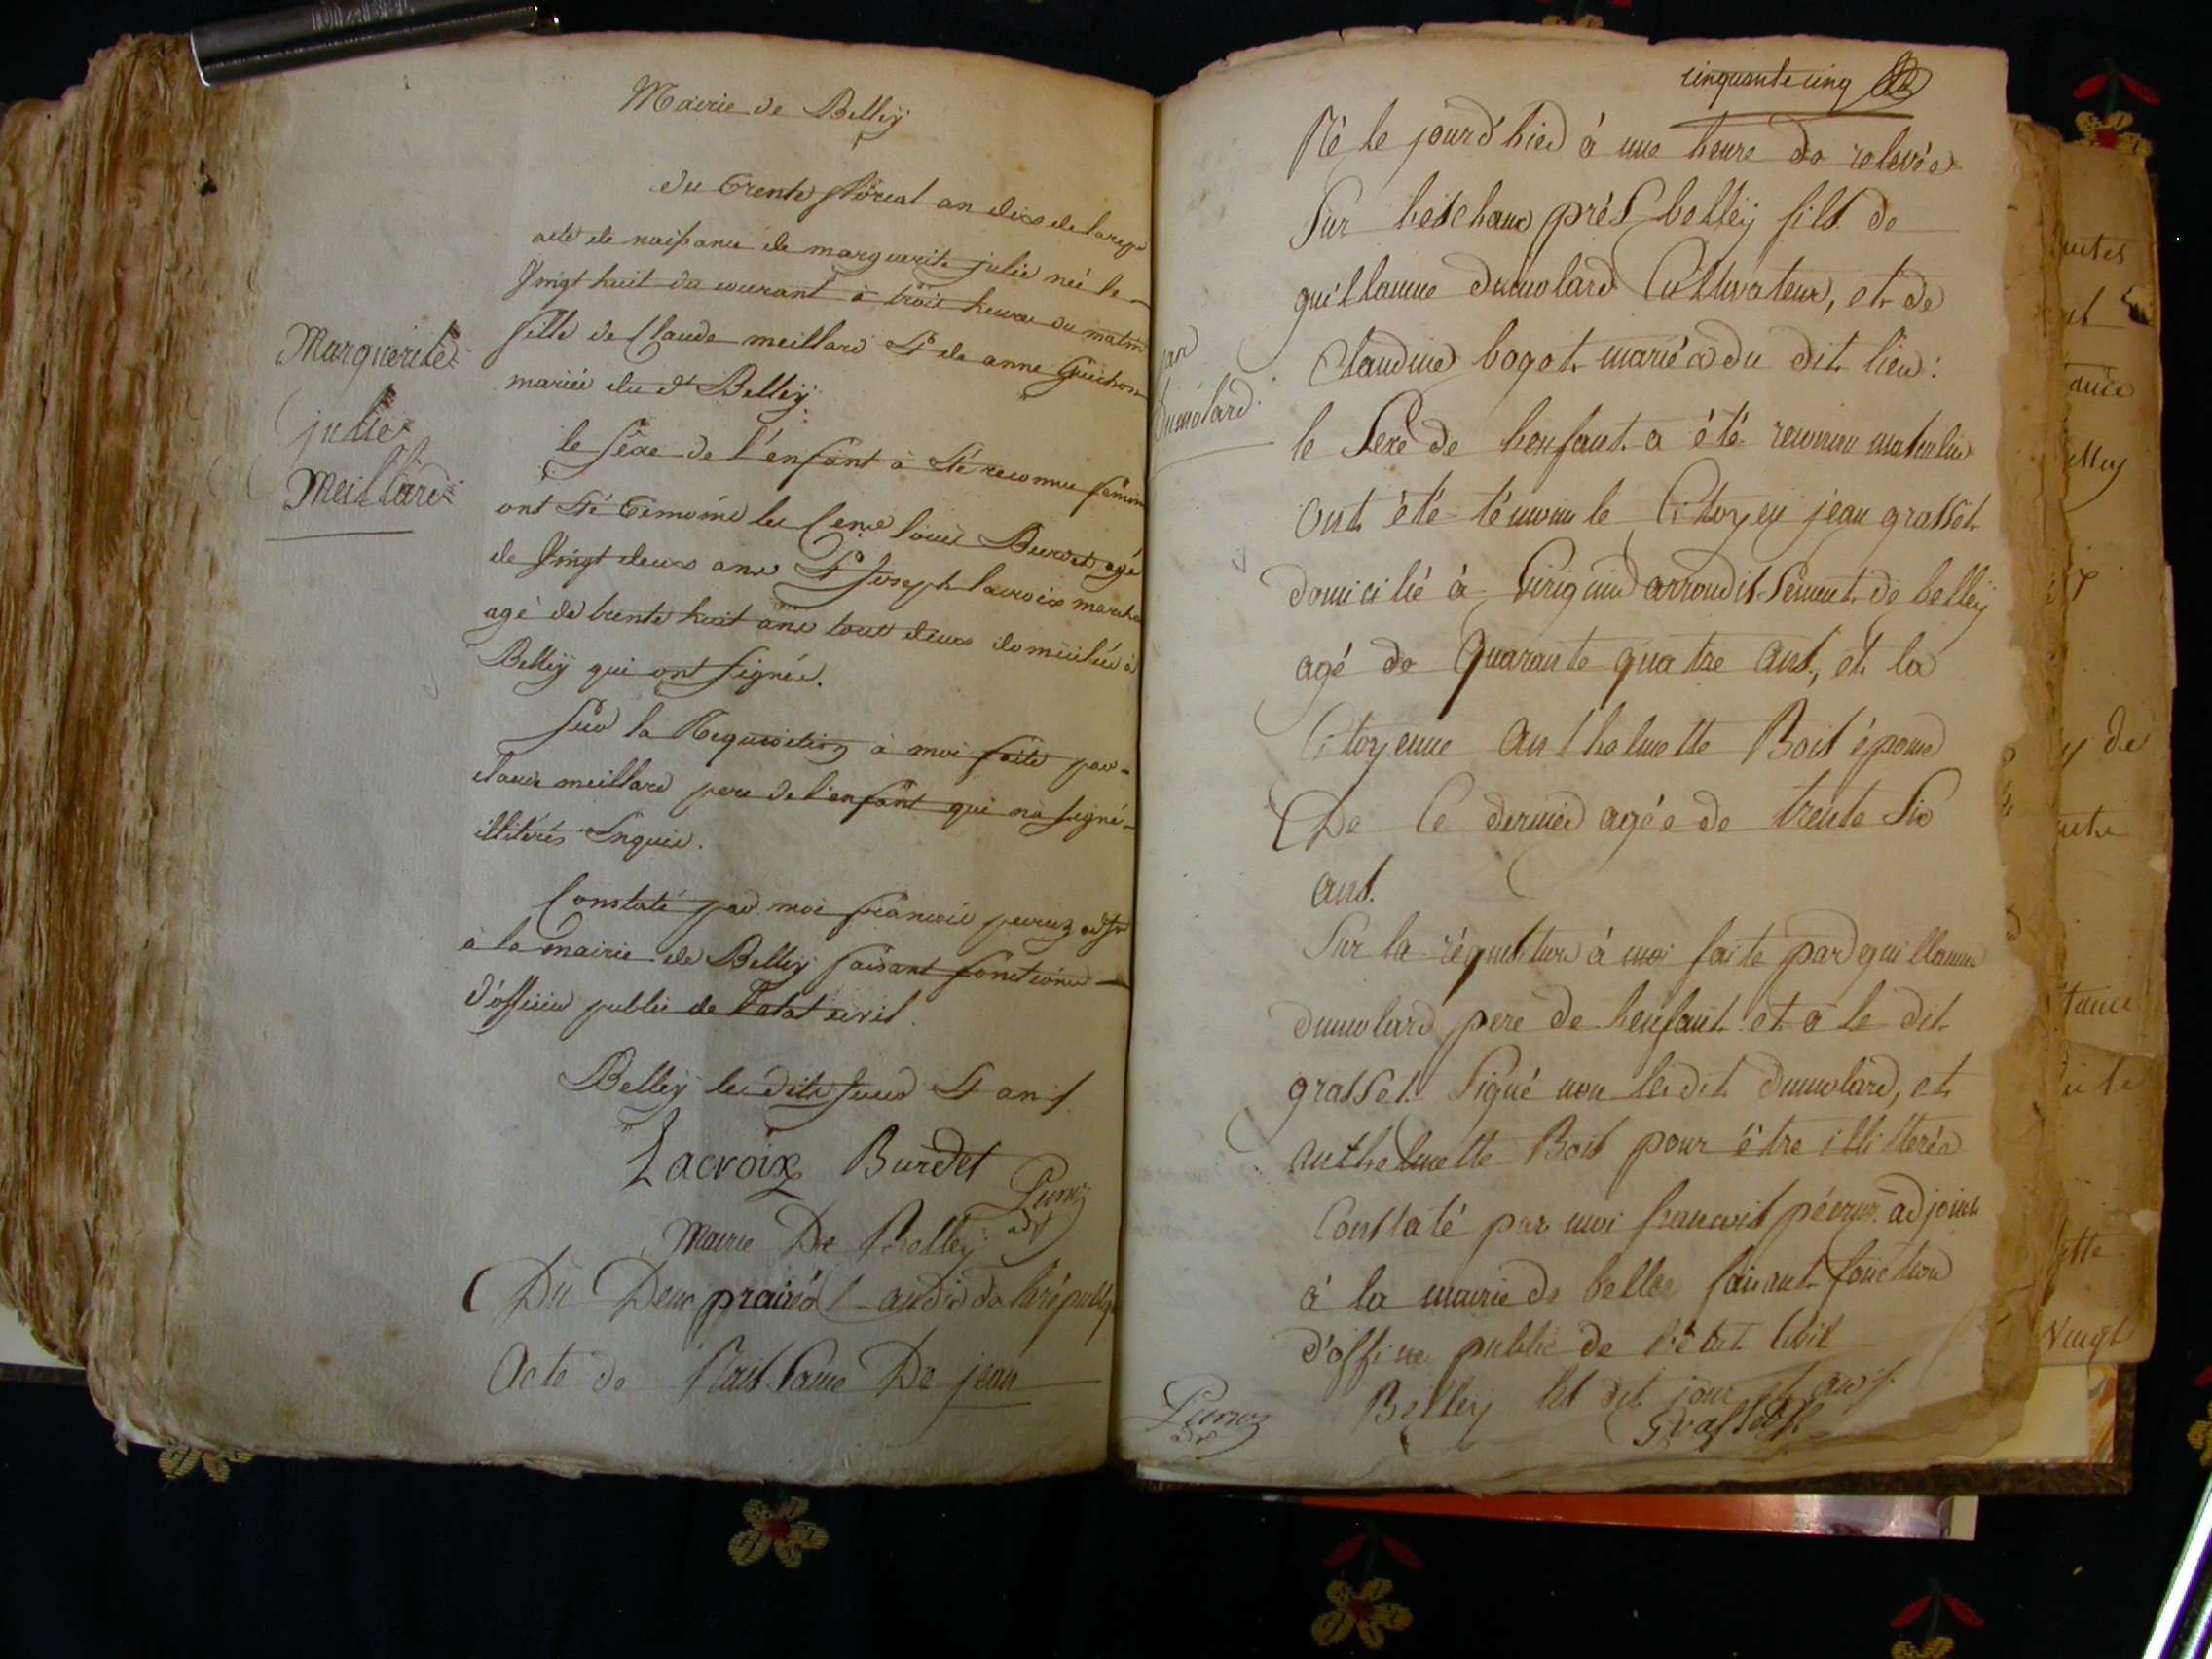 Mairie de Belleÿ
du trente floreal an dix de la rep
acte de naissance de marguerite julie née le
vingt huit du courant à trois heures du matin
fille de Claude meillard Et de anne Guichon
mariés du dt Belleÿ.
Marguerite
julie
Meillard
le sexe de l'enfant à Eté reconnu féminin
ont Eté temoins les Cens louis Burdet agé
de vingt deux ans Et Joseph lacroix march
agé de trente huit ans tous deux domiciliés à
Belleÿ qui ont signés.
sur la Requisition à moi faite par
claude meillard pere de l'enfant qui na signé
illiterés Enquis.
Constaté par moi francois peruz adjt
à la mairie de Belleÿ faisant fonctions
d'officier public de l'etat civil.
Belleÿ les dits jour Et an
Lacroix Burdet
adjt
Mairie De Belleÿ
Du Deux prairéal an dix de la répubq
Acte de Naissance De jean
cinquante cinq
Né le jourd'hier à une heure de relevée
Sur beschaux prés belleÿ fils de
guillaume dumolard Cultivateur, et de
Claudine bogot mariéa du dit lieu:
Dumolard
le Sexe de henfant a été reconnu masculin
Ont été témoins le Citoyen jean grasset
domicilié à Virignin arrondissement de belleÿ
agé de quarante quatre ans, et la
Citoyenne anthelmette Bois épouse
De Ce dernier agée de trente Six
ans.
Sur la réquisition à moi faite par guillaume
dumolard pere de henfant et a le dit
grasset Signé non ledit dumolard, et
anthelmette Bois pour être illitterés
Constaté par moi francois péeruz adjoint
à la mairie de belley faisant fonction
d'officier public de l'état Civil
Belleÿ les dit jour et an
Grasset
adjt
utes
nt
ance
elley
y de
tance
ette
Vingt